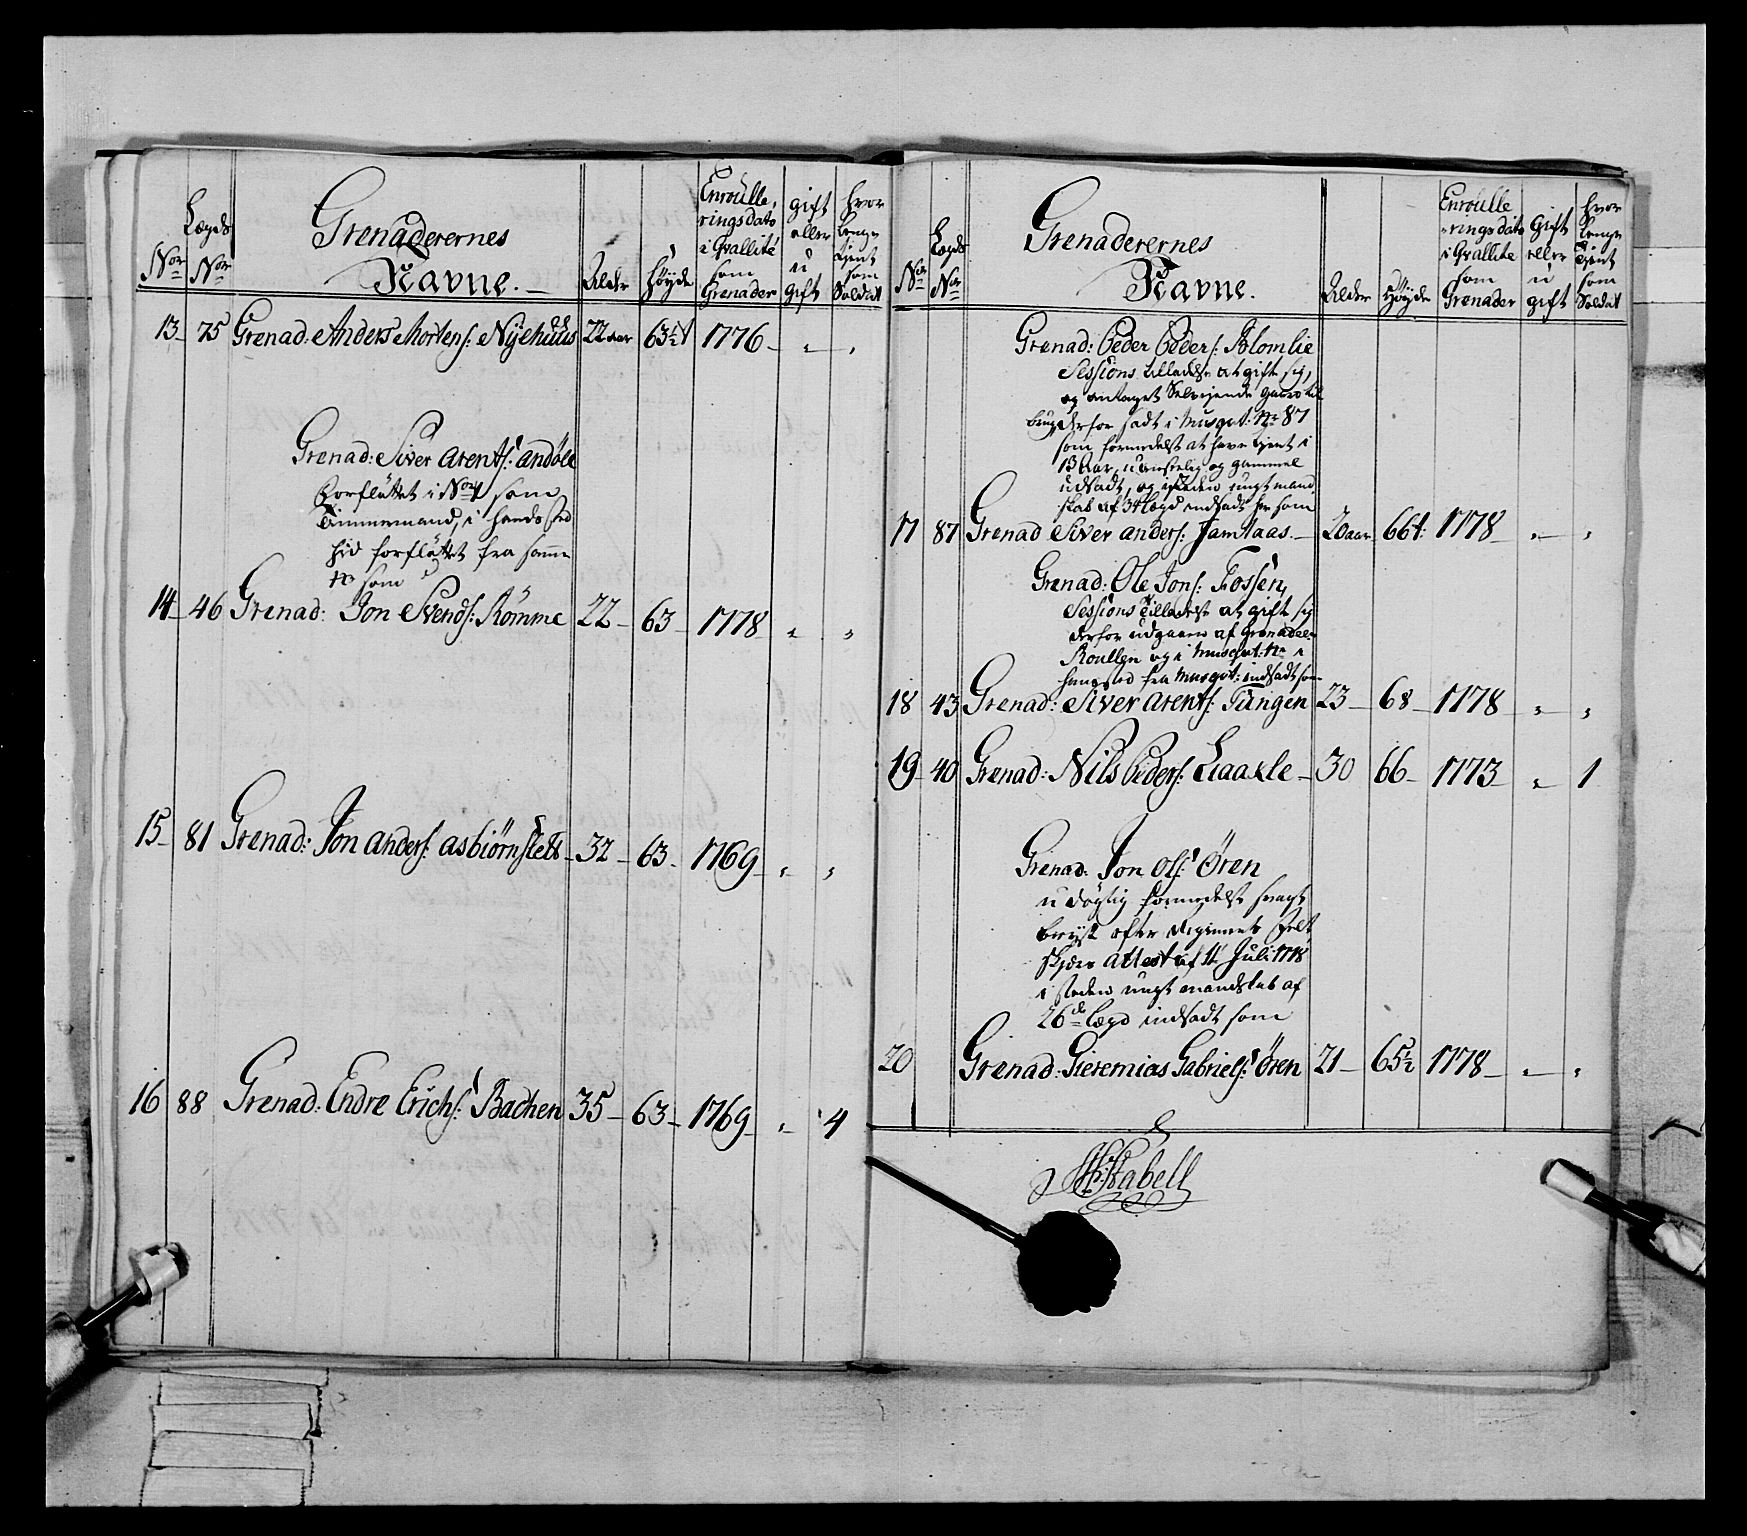 Nor
Lægds Nor
Grenaderernes
Navne.
Alder
Høyde
Enroulle,
ringsdato
i Qvallité
som
Grenader
gift
eller
u
gift
hvor
længe
tient
som
Soldat
13 75 Grenad: Anders Mortens: Nyehuus 22 aar 63½ 1776 " "
Grenad: Siver Arents: Andøll
Forfløttet i Nor 4 som
Timmermand, i hands sted
hid forfløttet fra samme
Nr som
14 46 Grenad: Jon Svends: Rømme 22 63 1778 " "
15 81 Grenad: Jon Anders: Asbiørnslett 32 63 1769 " "
16 88 Grenad: Endre Erichs: Bachen 35 63 1769 " 4
Nor
Lægds
Nor
Grenaderernes
Navne.
Alder
Høyde
Enroulle
ringsdato
i Qvallite
som
Grenader
Gift
eller
u
gift
hvor
længe
Tient
som
Soldat
Grenad: Peder Peders: Blomlie
Sessions tilladelse at gift sig,
og antaget Selveyende Gaard til
brug derfor sadt i Musqat: Nr 87
som formedelst at have tient i
13 Aar, uanseelig og gammel
udsadt, og i steden ungt mand
skab af 34 Lægd indsadt her som
17 87 Grenad Siver Anders: Jamtaas 20 aar 66 1778 " "
Grenad: Ole Jons: Fossen,
Sessions Tilladelse at gift sig
derfor udgaaen af Grenadeer
Roullen og i Musqut: Nr i
hans sted fra Musqut: indsadt som
18 43 Grenad: Siver Arents: Tungen 23 68 1778 " "
19 40 Grenad: Nils Peders: Laaxle 30 66 1773 " 1
Grenad: Jon Ols: Øren
udøgtig formedelst svagt
bryst efter Regiments Felt
skiærs Attest af Juli 1778
i steden ungt mandskab af
26de Lægd indsadt som
20 Grenad: Gieremias Gabriels: Øren 21 65½ 1778 " "
Kabell